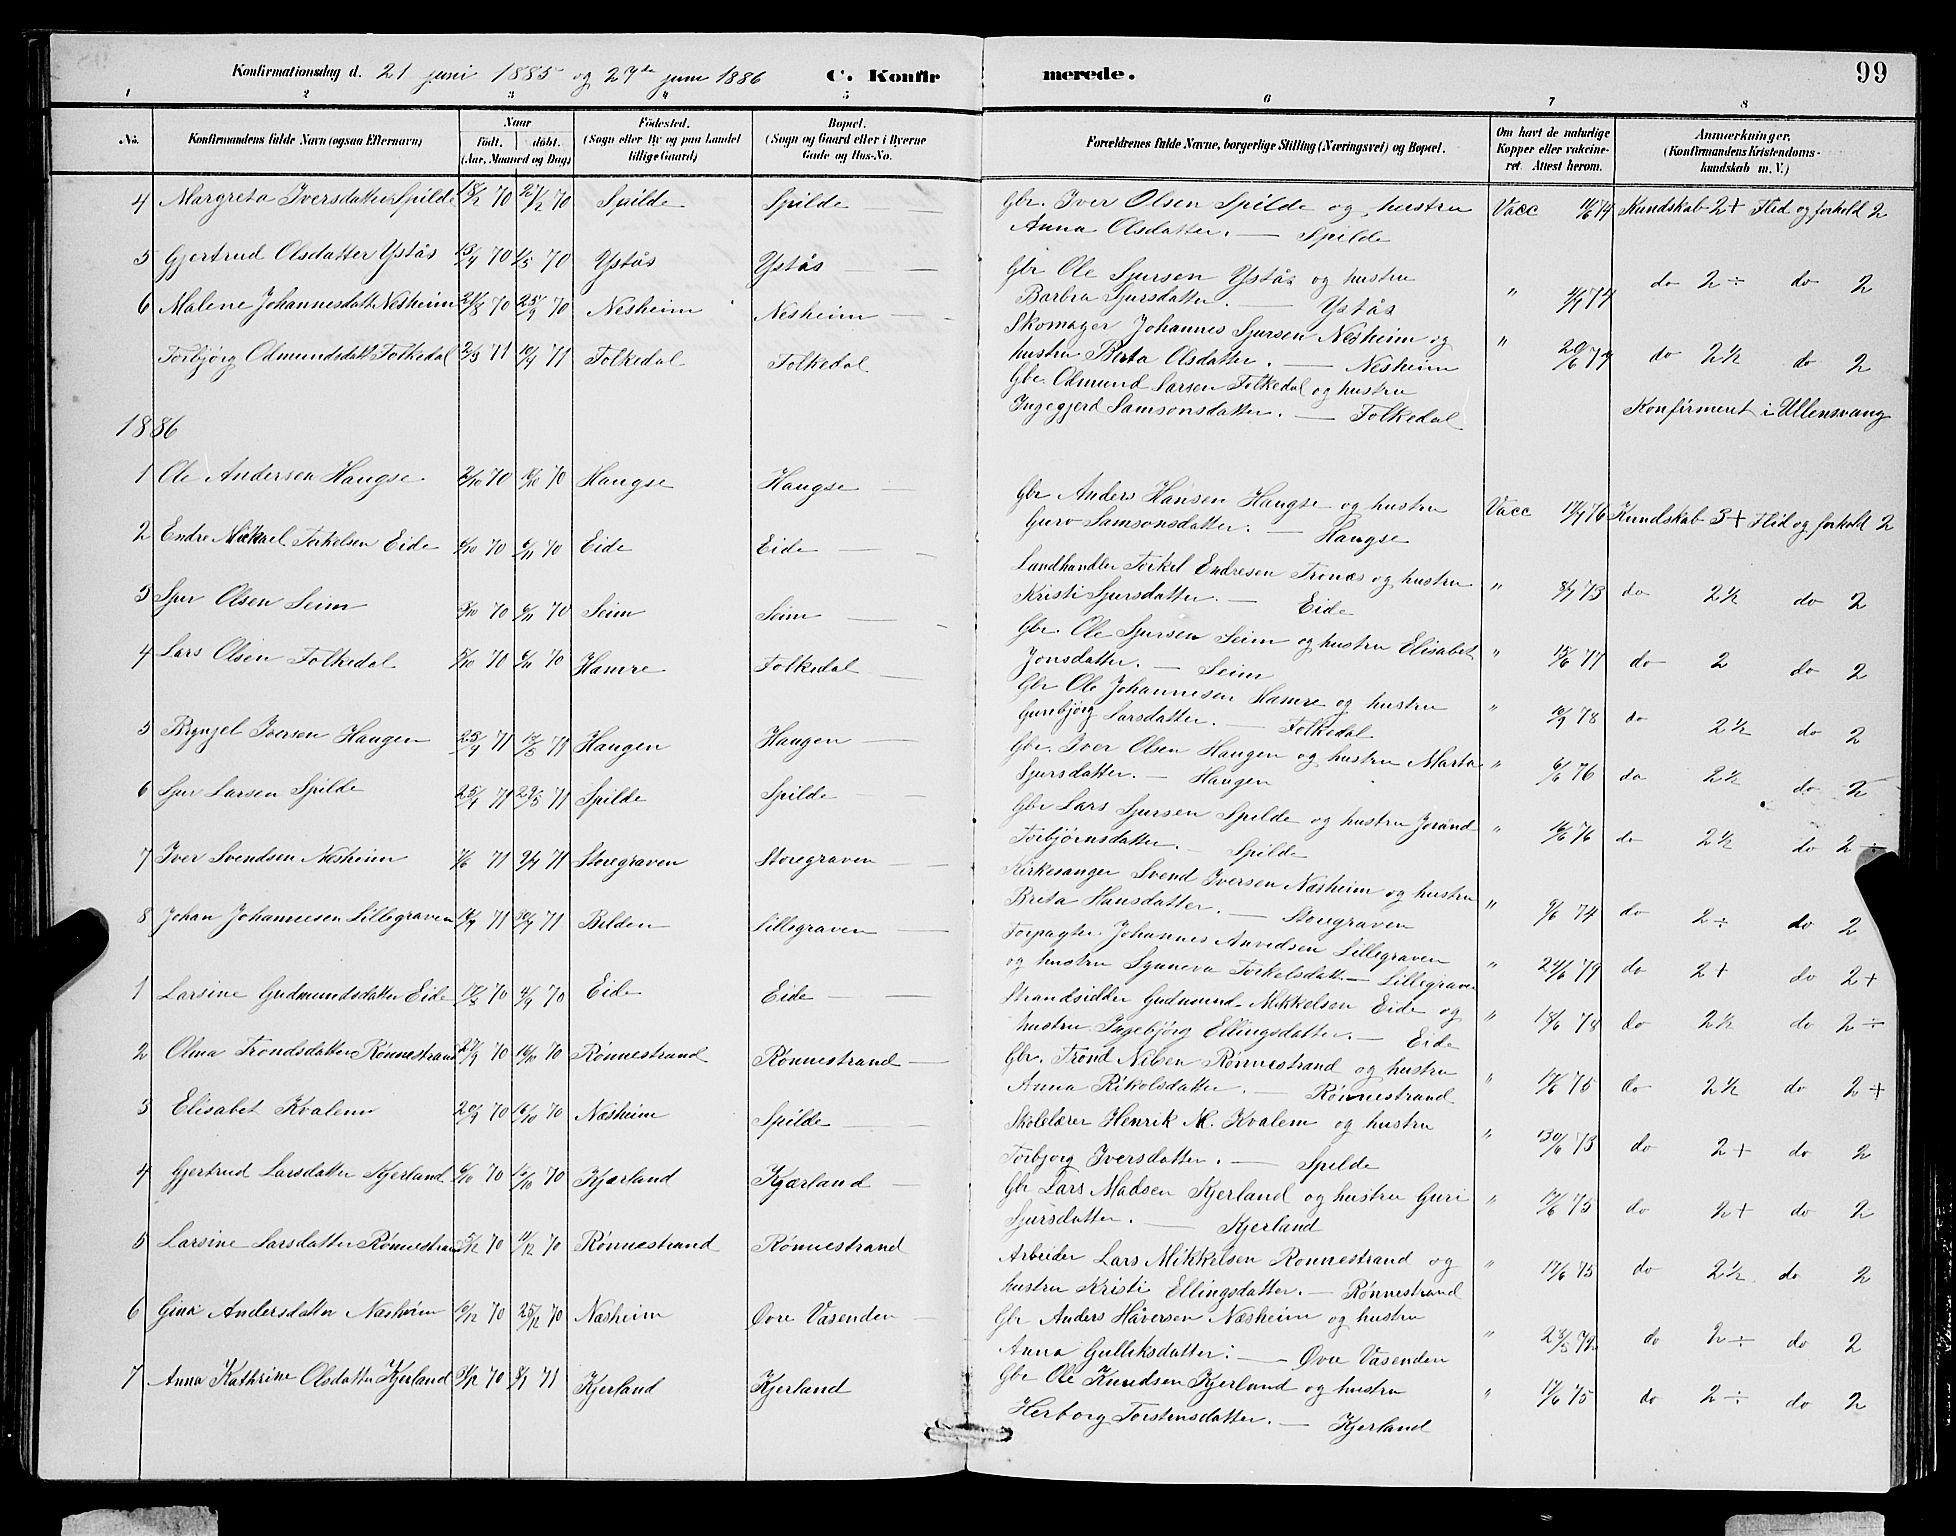 99
Konfirmationsdag d. 21 juni 1885 og 27de juni 1886 C. Konfirmerede.
1 2 3 4 5 6 7 8
No. Konfirmandens fulde Navn (ogsaa Efternavn) Naar födt. döbt. (Aar, Maaned og Dag) Födested. (Sogn eller By og paa Landet tillige Gaard) Bopæl. (Sogn og Gaard eller i Byerne Gade og Hus-No. Forældrenes fulde Navne, borgerlige Stilling (Næringsvei) og Bopæl. Om havt de naturlige Kopper eller vakcineret. Attest herom. Anmærkninger. (Konfirmandens Kristendomskundskab m. V.)
4 Margreta Iversdatter Spilde 18/2 70 27/2 70 Spilde Spilde Gbr. Iver Olsen Spilde og hustru Vacc 74 Kundskab 2+ Flid og forhold 2
Anna Olsdatter. — Spilde
5 Gjertrud Olsdatter Ystås 13/4 70 1/5 70 Ystås Ystås Gbr Ole Sjursen Ystås og hustru " 74 do 2÷ do 2
Barbra Sjursdatter. — Ystås
6 Malene Johannesdatt. Nesheim 21/8 70 25/9 70 Nesheim Nesheim Skomager Johannes Sjursen Nesheim og " 20/6 74 do 2½ do 2
hustru Brita Olsdatter. — Nesheim
Torbjörg Odmundsdatt. Folkedal 2/3 71 10/4 71 Folkedal Folkedal Gbr. Odmund Larsen Folkedal og hustru
Ingegjerd Samsonsdatter. — Folkedal Konfirmeret i Ullensvang
1886
1 Ole Andersen Haugse 2/10 70 70 Haugse Haugse Gbr Anders Hansen Haugse og hustru Vacc 76 Kundskab 3+ Flid og forhold 2
Guro Samsonsdatter. — Haugse
2 Endre Mikkael Torkelsen Eide 6/10 70 6/11 70 Eide Eide Landhandler Torkel Endresen Tronæs og hustru " 73 do 2½ do 2
Kristi Sjursdatter. — Eide
3 Sjur Olsen Seim 70 6/11 70 Seim Seim Gbr. Ole Sjursen Seim og hustru Elisabet " 77 do 2 do 2
Jonsdatter. — Seim
4 Lars Olsen Folkedal 70 6/11 70 Hamre Folkedal Gbr Ole Johannesen Hamre og hustru " 78 do 2½ do 2
Gurebjörg Larsdatter. — Folkedal
5 Brynjel Iversen Haugen 25/4 71 71 Haugen Haugen Gbr. Iver Olsen Haugen og hustru Marta " 6/6 76 do 2½ do 2
Sjursdatter. — Haugen
6 Sjur Larsen Spilde 25/4 71 29/5 71 Spilde Spilde Gbr Lars Sjursen Spilde og hustru Jorånd " 76 do 2½ do 2÷
Torbjörnsdatter. — Spilde
7 Iver Svendsen Nesheim 71 71 Storegraven Storegraven Kirkesanger Svend Iversen Næsheim og hustru " 74 do 2÷ do 2
Brita Hansdatter. — Storegraven
8 Johan Johannesen Lillegraven 71 71 Bilden Lillegraven Forpagter Johannes Anvedsen Lillegraven " 24/6 79 do 2+ do 2+
og hustru Synneva Torkelsdatt. — Lillegraven
1 Larsine Gudmundsdatter Eide 70 4/9 70 Eide Eide Strandsidder Gudmund Mikkelsen Eide og " 18/6 78 do 2½ do 2÷
hustru Ingebjörg Ellingsdatter. — Eide
2 Olina Trondsdatter Rönnestrand 27/9 70 16/10 70 Rönnestrand Rönnestrand Gbr. Trond Nilsen Rönnestrand og hustru " 75 do 2½ do 2+
Anna Rikolsdatter. — Rönnestrand
3 Elisabet Kvalem 20/9 70 16/10 70 Næsheim Spilde Skolelærer Henrik M. Kvalem og hustru " 30/6 73 do 2+ do 2
Torbjorg Iversdatter. — Spilde
4 Gjertrud Larsdatter Kjerland 6/10 70 70 Kjærland Kjærland Gbr Lars Madsen Kjerland og hustru Guri " 75 do 2+ do 2
Sjursdatter. — Kjerland
5 Larsine Larsdatter Rönnestrand 5/12 70 11/12 70 Rönnestrand Rönnestrand Arbeider Lars Mikkelsen Ronnestrand og " 17/6 75 do 2½ do 2
hustru Kristi Ellingsdatter. — Rönnestrand
6 Gina Andersdatter Næsheim 10/12 70 25/12 70 Næsheim Øvre Vasenden Gbr Anders Håversen Næsheim og hustru " 28/5 72 do 2÷ do 2
Anna Gulliksdatter. — Øvre Vasenden
7 Anna Kathrine Olsdatter Kjerland 70 71 Kjerland Kjerland Gbr Ole Knudsen Kjerland og hustru " 17/6 75 do 2÷ do 2
Herborg Torstensdatter. — Kjerland